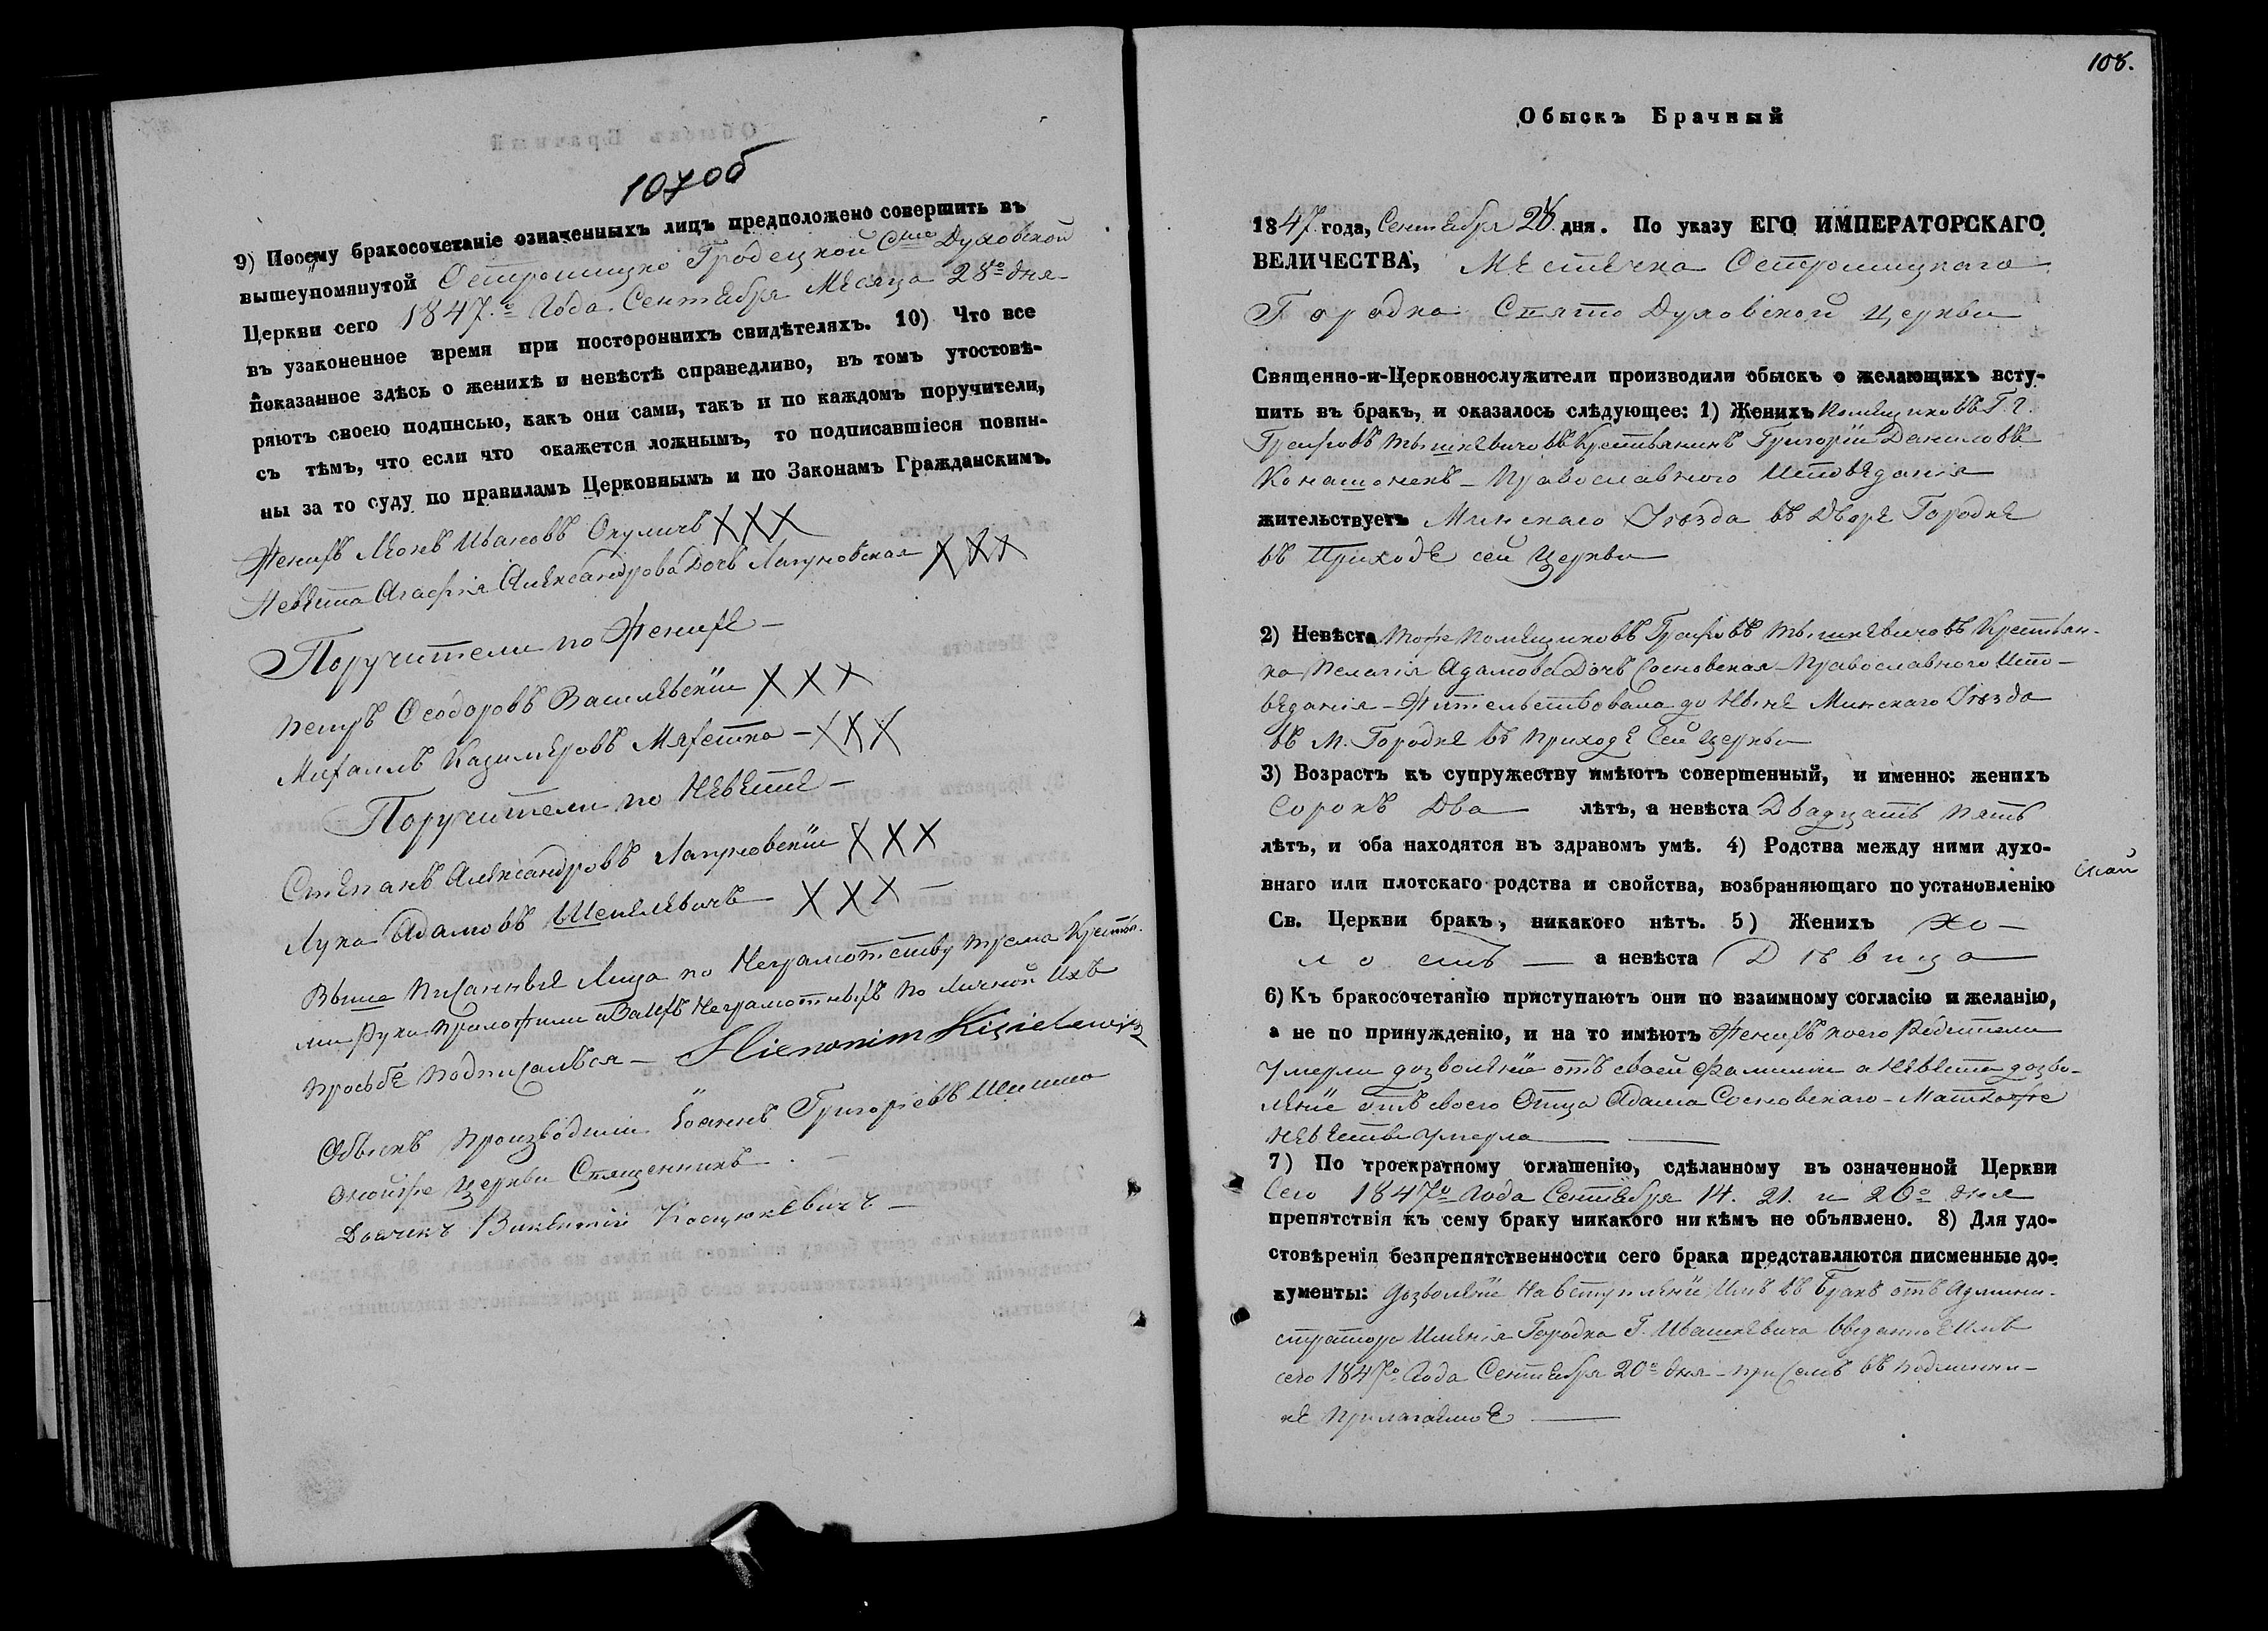 107об
9) Посему бракосочетаніе означенныхъ лицъ предположено совершить въ
вышеупомянутой Острошицко Гродецкой Сто Духовской
Церкви сего 1847.го Года. Сентября Мѣсяца 28го дня
въ узаконенное время при постороннихъ свидѣтеляхъ. 10) Что все
показанное здѣсь о женихѣ и невѣстѣ справедливо, въ томъ утостовѣ-
ряютъ своею подписью, какъ они сами, такъ и по каждомъ поручители,
съ тѣмъ, что если что окажется ложнымъ, то подписавшіеся повин-
ны за то суду по правиламъ Церковнымъ и по Законамъ Гражданскимъ.
Женихъ Леонъ Ивановъ Окуличъ ХХХ
Невѣста Агафія Александрова Дочь Лагуновская ХХХ
Поручители по Женихѣ —
Петръ Ѳеодоровъ Василевскій ХХХ
Михаилъ Казимеровъ Мяжетка — ХХХ
Поручители по Невѣстѣ —
Степанъ Александровъ Лагуновскій ХХХ
Лука Адамовъ Шепелевичъ ХХХ —
Выше писанные Лица по Неграмотству трема Крестъ.
ми Руки приложили а За ихъ Неграмотныхъ по личной Ихъ
просьбѣ подписался — Hieronim Kisielewicz
Обыскъ производили Іоаннъ Григоріевъ Шишко
Онойже Церкви Священникъ . —
Дьячекъ Викентій Косцюкевичъ —
108.
Обыскъ Брачный
1847 года, Сентября 28 дня. По указу ЕГО ИМПЕРАТОРСКАГО
ВЕЛИЧЕСТВА, Местечка Острошицкаго
Городка Свято Духовской Церкви
Священно-и-Церковнослужители производили обыскъ о желающихъ всту-
пить въ бракъ, и оказалось слѣдующее: 1) Женихъ Помещиковъ Г. Г.
Графовъ Тышкевичовъ Крестьянинъ Григорій Даниловъ
Конашонекъ — Православного Исповеданія
жительствуетъ Минскаго Уѣзда въ Дворе Городке
въ Приходе сей Церкви
2) Невѣста тохже Помещиковъ Графовъ Тышкевичовъ Крестьян-
ка Пелагія Адамова Дочь Сосновская Православного Испо-
веданія — Жительствовала до Ныне Минскаго Уѣзда
въ М. Городке въ приходе Сей Церкви
3) Возрастъ къ супружеству имѣютъ совершенный, и именно: женихъ
Сорокъ Два — лѣтъ, а невѣста Двадцать пять
лѣтъ, и оба находятся въ здравомъ умѣ. 4) Родства между ними духо-
внаго или плотскаго родства и свойства, возбраняющаго по установленію
Св. Церкви бракъ, никакого нѣтъ. 5) Женихъ хо-
лостъ — а невѣста Дѣвица
6) Къ бракосочетанію приступаютъ они по взаимному согласію и желанію,
а не по принужденію, и на то имѣютъ Женихъ коего Родители
умерли дозволеніе отъ своей Фамиліи а Невеста дозво-
леніе отъ своего Отца Адама Сосновскаго — Матка же
Невесты умерла —
7) По троекратному оглашенію, сдѣланному въ означенной Церкви
Сего 1847го Года Сентября 14. 21. и 26го дня
препятствія къ сему браку никакого ни кѣмъ не объявлено. 8) Для удо-
стовѣренія безпрепятственности сего брака представляются писменные до-
кументы: дозволеніе на вступленіе Имъ въ Бракъ отъ Админи-
стратора Именія Городка Г. Ивашкевича выданное Имъ
сего 1847го Года Сентября 20го дня — при семъ въ подлинни-
ке прилагаемое —